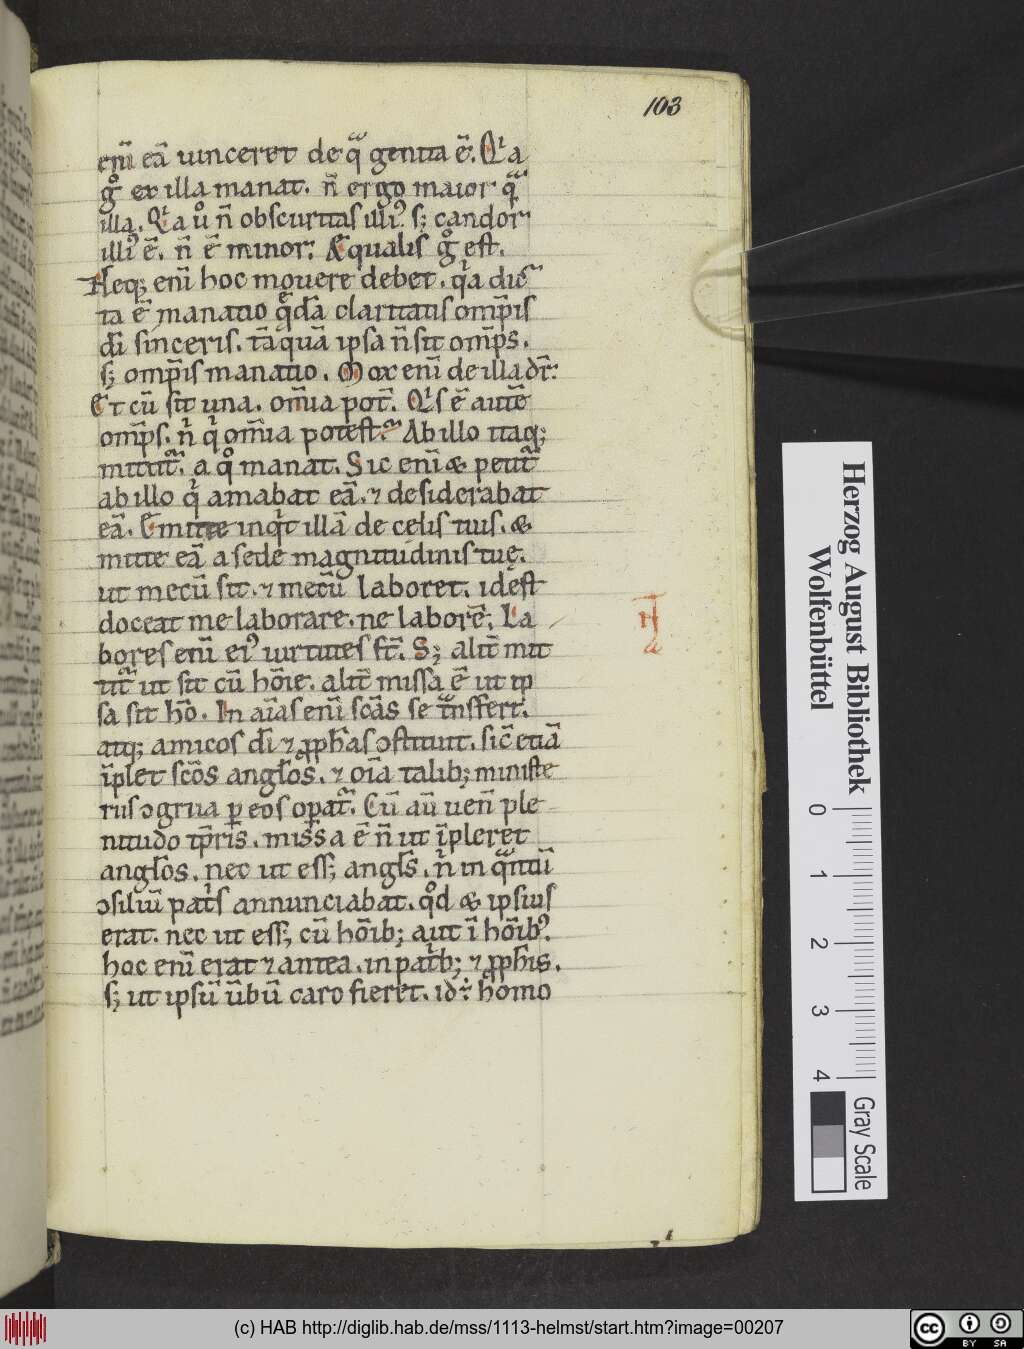 103
enī eā uinceret de q̄ genita ē. Qⁱa
gͦ ex illa manat. n̄ ergo maior qᷓ
illa. Qⁱa uͦ n̄ obscuritas illiꝰ s; candor
illiꝰ ē. n̄ ē minor. Æqualis gͦ est.
Neq; enī hoc mouere debet. qⁱa dic
ta ē manatio q̄dā claritatis omp̄is
dī sinceris. tāquā ipsa n̄ sit omp̄s.
s; omp̄is manatio. Mox enī de illa dr̄.
Et cū sit una. omīa pot̄. Qⁱs ē autē
omp̄s. nⁱ qⁱ omīa potest. Ab illo itaq;
mittitᷣ. a qͦ manat. Sic enī & petitᷣ
ab illo qⁱ amabat eā. ⁊ desiderabat
eā. Emitte inqⁱt illā de celis tuis. &
mitte eā a sede magnitudinis tuę.
ut mecū sit. ⁊ mecū laboret. idest
doceat me laborare. ne laborē. La
bores enī eiꝰ uirtutes st̄. S; alit̄ mit
titᷣ ut sit cū hōie. alit̄ missa ē ut ip
sa sit hō. In aīas enī scās se tᷓnsfert.
atq; amicos dī ⁊ ꝓph̄as ɔstituit. sic̄ etiā
īplet scōs angl̄os. ⁊ oīa talib; ministe
riis ɔgrua ꝑ eos opatᷣ. Cū aū uen̄ ple
nitudo tp̄ris. missa ē n̄ ut īpleret
angl̄os. nec ut ess; angl̄s. nⁱ in qᷓntū
ɔsiliū patⁱs annunciabat. qͦd & ipsius
erat. nec ut ess; cū hōib; aut ī hōibꝰ.
hoc enī erat ⁊ antea. in patⁱb; ⁊ ꝓph̄is.
s; ut ipsū ūbū caro fieret. id÷ homo
Herzog August Bibliothek
Wolfenbüttel
0 1 2 3 4
Gray Scale
(c) HAB http://diglib.hab.de/mss/1113-helmst/start.htm?image=00207
cc BY SA